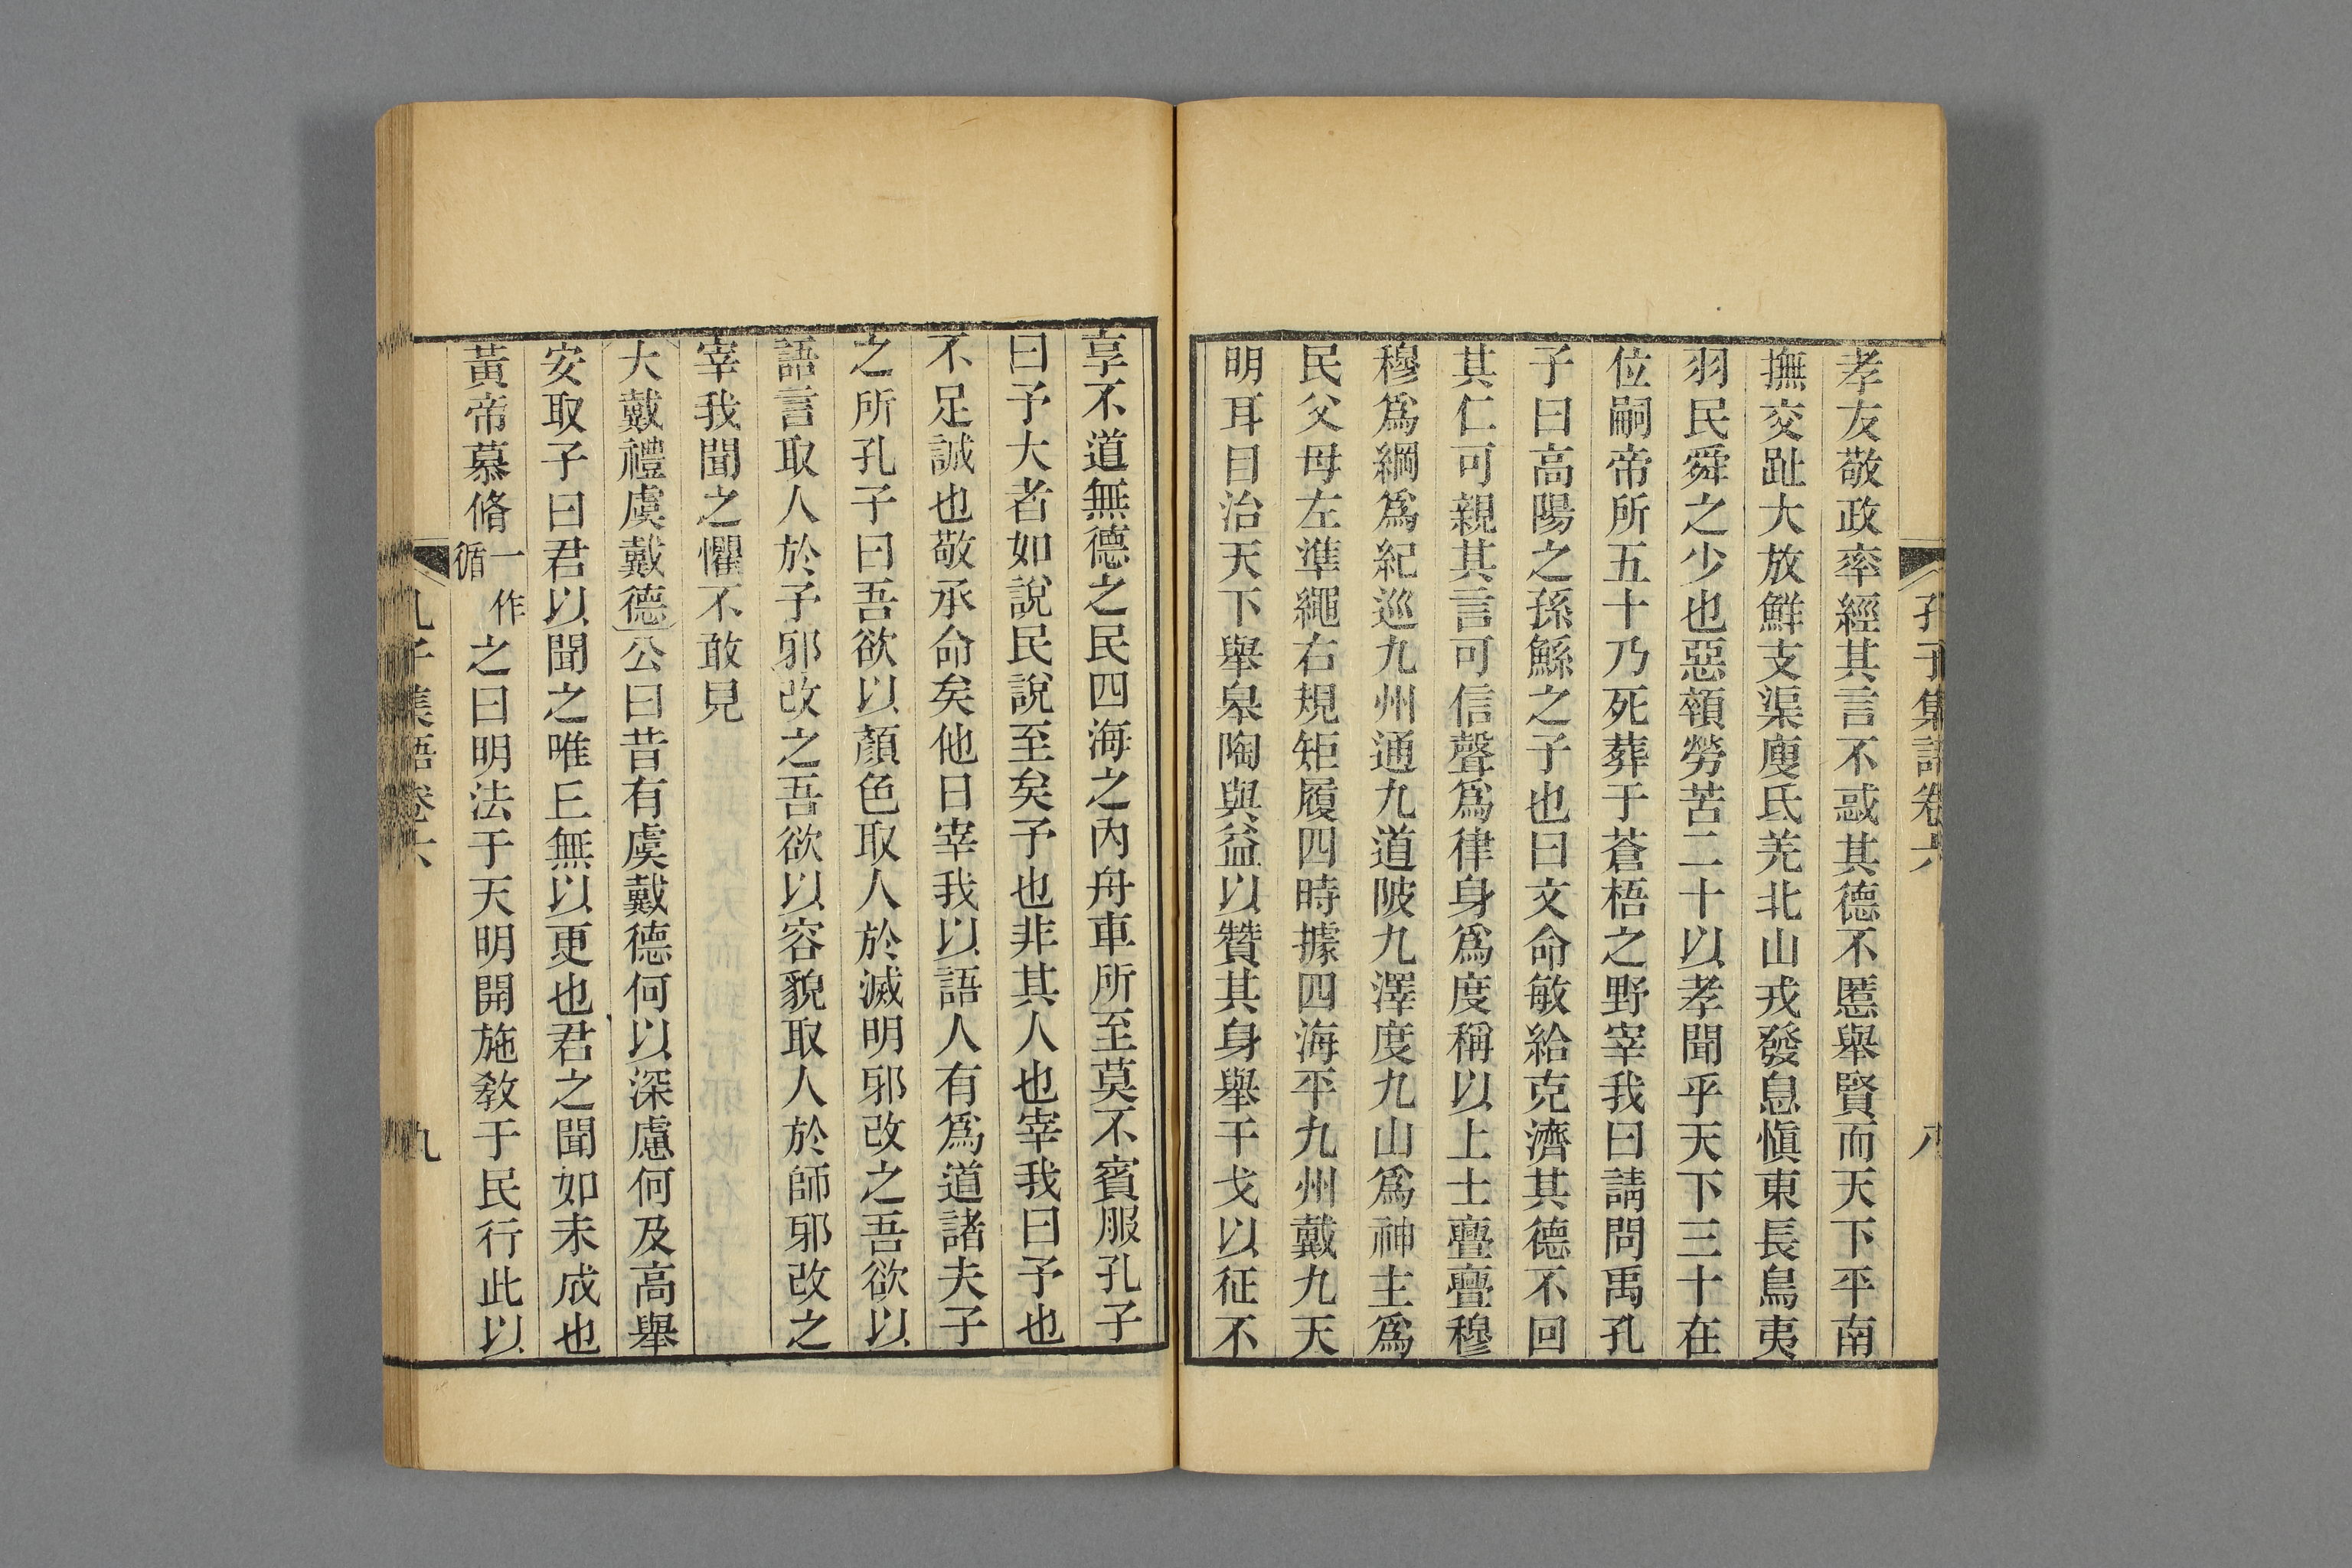 孔子集語卷六
八
孝友敬政率經其言不惑其德不慝舉賢而天下平南
撫交趾大放鮮支渠廋氐羌北山戎發息愼東長鳥夷
羽民舜之少也惡頟勞苦二十以孝聞乎天下三十在
位嗣帝所五十乃死葬于蒼梧之野宰我曰請問禹孔
子曰高陽之孫鯀之子也曰文命敏給克濟其德不回
其仁可親其言可信聲爲律身爲度稱以上士亹亹穆
穆爲綱爲紀巡九州通九道陂九澤度九山爲神主爲
民父母左準繩右規矩履四時據四海平九州戴九天
明耳目治天下舉皋陶與益以贊其身舉干戈以征不
享不道無德之民四海之內舟車所至莫不賓服孔子
曰予大者如說民說至矣予也非其人也宰我曰予也
不足誠也敬承命矣他日宰我以語人有爲道諸夫子
之所孔子曰吾欲以顏色取人於滅明邪改之吾欲以
語言取人於予邪改之吾欲以容貌取人於師邪改之
宰我聞之懼不敢見
大戴禮虞戴德公曰昔有虞戴德何以深慮何及高舉
安取子曰君以聞之唯丘無以更也君之聞如未成也
黃帝慕脩一作循之曰明法于天明開施敎于民行此以
孔子集語卷六
九